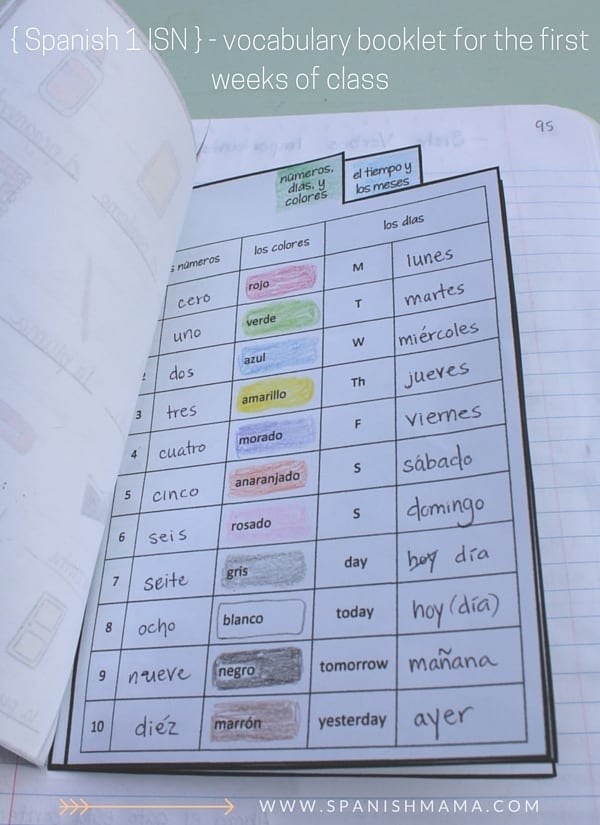 { Spanish 1 ISN } - vocabulary booklet for the first
weeks of class
95
números,
días, y
colores
el tiempo y
los meses
s números los colores los días
cero rojo M lunes
uno verde T martes
2 dos azul W miércoles
3 tres amarillo Th jueves
4 cuatro morado F viernes
5 cinco anaranjado S sábado
6 seis rosado S domingo
7 seite gris day hoy día
8 ocho blanco today hoy (día)
9 nueve negro tomorrow mañana
10 diéz marrón yesterday ayer
WWW.SPANISHMAMA.COM